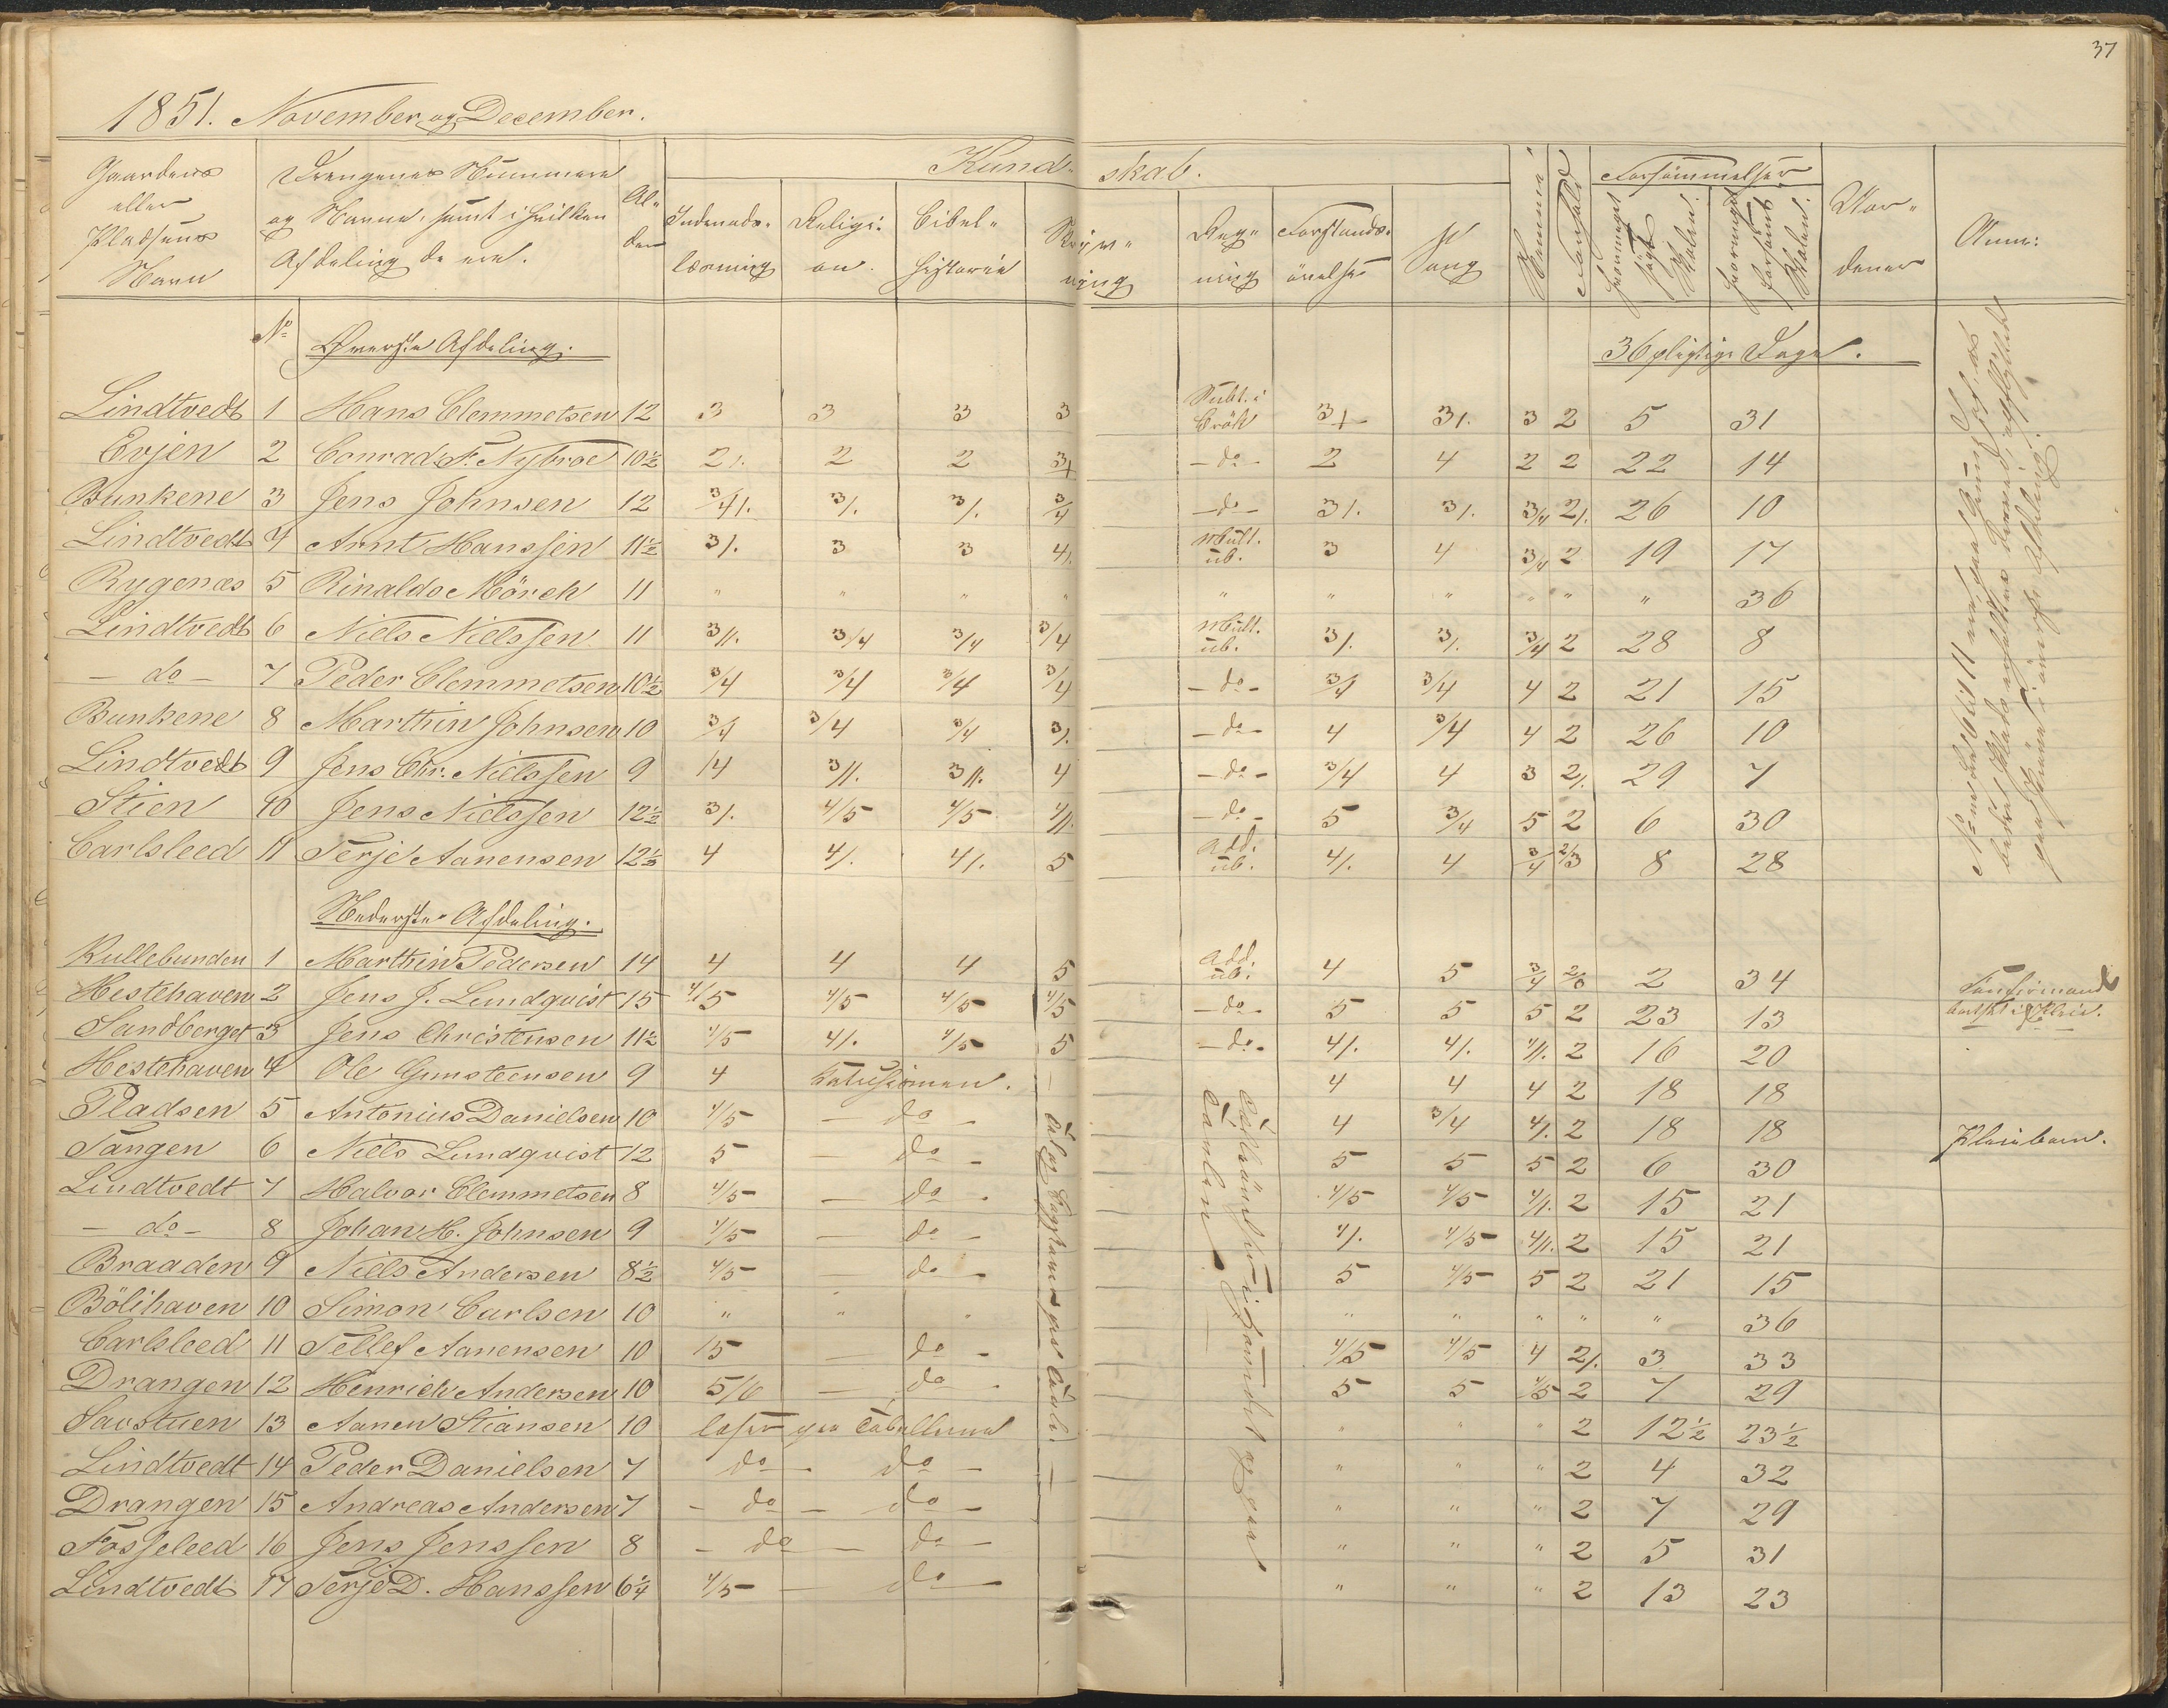 37
1851. November og December.
Gaardens eller Pladsens Navn | Drengenes Nummere og Navne, samt i hvilken Afdeling de ere. | Al- der | Kund- skab. | Forsømmelser | Anm:
Indenads- læsning | Religi- on | Bibel- historie | Skriv- ning | Reg- ning | Forstands- øvelse | Sang | Nemme | Forhold | hvormeget søgt Skolen | hvormeget forsømt Skolen
No | Øverste Afdeling. | 36 pligtige Dage.
Lindtvedt 1 Hans Clemmetsen 12 | 3 | 3 | 3 | 3 | Subt. i Brök | 3+ | 3/. | 3 | 2 | 5 | 31
Evjen 2 Conrad F. Nybroe 10½ | 2/. | 2 | 2 | 3+ | - do - | 2 | 4 | 2 | 2 | 22 | 14
Bunkene 3 Jens Johnsen 12 | 3/4/. | 3/. | 3/. | 3/4 | - do - | 3/. | 3/. | 3/4 | 2/. | 26 | 10
Lindtvedt 4 Arnt Hanssen 11½ | 3/. | 3 | 3 | 4/. | Mult. ub. | 3 | 4 | 3/4 | 2 | 19 | 17
Rygenæs 5 Rinaldo Mörch 11 | " | " | " | " | " | " | " | " | " | " | 36
Lindtvedt 6 Niels Nielssen 11 | 3//. | 3/4 | 3/4 | 3/4 | Mult. ub. | 3/. | 3/. | 3/4 | 2 | 28 | 8
- do - 7 Peder Clemmetsen 10½ | 3/4 | 3/4 | 3/4 | 3/4 | - do - | 3/4 | 3/4 | 4 | 2 | 21 | 15
Bunkene 8 Marthin Johnsen 10 | 3/4 | 3/4 | 3/4 | 3/. | - do - | 4 | 3/4 | 4 | 2 | 26 | 10
Lindtvedt 9 Jens Chr. Nielssen 9 | /4 | 3//. | 3//. | 4 | - do - | 3/4 | 4 | 3 | 2/. | 29 | 7
Stien 10 Jens Nielssen 12½ | 3/. | 4/5 | 4/5 | 4//. | - do - | 5 | 3/4 | 5 | 2 | 6 | 30
Carlsleed 11 Terje Aanensen 12½ | 4 | 4/. | 4/. | 5 | Add. ub. | 4/. | 4 | 3/4 | 2/3 | 8 | 28
Nederste Afdeling.
Rullebunden 1 Marthin Pedersen 14 | 4 | 4 | 4 | 5 | Add. ub. | 4 | 5 | 3/4 | 2 | 34
Hestehaven 2 Jens J. Lundqvist 15 | 4/5 | 4/5 | 4/5 | 4/5 | - do - | 5 | 5 | 5 | 2 | 23 | 13
Sandberget 3 Jens Christensen 11½ | 4/5 | 4/. | 4/5 | 5 | - do - | 4/. | 4/. | 4//. | 2 | 16 | 20
Hestehaven 4 Ole Gunsteensen 9 | 4 | Katechismen. | 4 | 4 | 4 | 2 | 18 | 18
Pladsen 5 Antonius Danielsen 10 | 4/5 | - do - | 4 | 3/4 | 4/. | 2 | 18 | 18 | Pleiebarn.
Tangen 6 Niels Lundqvist 12 | 5 | - do - | 5 | 5 | 5 | 2 | 6 | 30
Lindtvedt 7 Halvor Clemmetsen 8 | 4/5 | - do - | 4/5 | 4/5 | 4/. | 2 | 15 | 21
- do - 8 Johan H. Johnsen 9 | 4/5 | - do - | 4/. | 4/5 | 4//. | 2 | 15 | 21
Braaden 9 Niels Andersen 8½ | 4/5 | - do - | 5 | 4/5 | 5 | 2 | 21 | 15
Bölihaven 10 Simon Carlsen 10 | " | " | " | " | " | " | " | " | 36
Carlsleed 11 Tellef Aanensen 10 | /5 | do - | 4/5 | 4/5 | 4 | 2/. | 3 | 33
Drangen 12 Henrich Andersen 10 | 5/6 | - do - | 5 | 5 | 4/5 | 2 | 7 | 29
Savstuen 13 Aanen Stiansen 10 | læser paa Tabellerne | " | " | " | 2 | 12½ | 23½
Lindtvedt 14 Peder Danielsen 7 | do - do - | " | " | " | 2 | 4 | 32
Drangen 15 Andreas Andersen 7 | - do - do - | " | " | " | 2 | 7 | 29
Fosseleed 16 Jens Jenssen 8 | - do - do - | " | " | " | 2 | 5 | 31
Lindtvedt 17 Terje D. Hanssen 6¼ | 4/5 - do - | " | " | " | 2 | 13 | 23